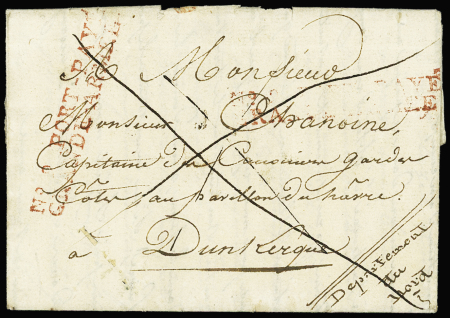 A Monsieur
Monsieur Chanoine,
Capitaine du Canonier Garde
Côte, au pavillon du hâvre.
à Dunkerque
Departement
du
Nord
PORT-PAYÉ